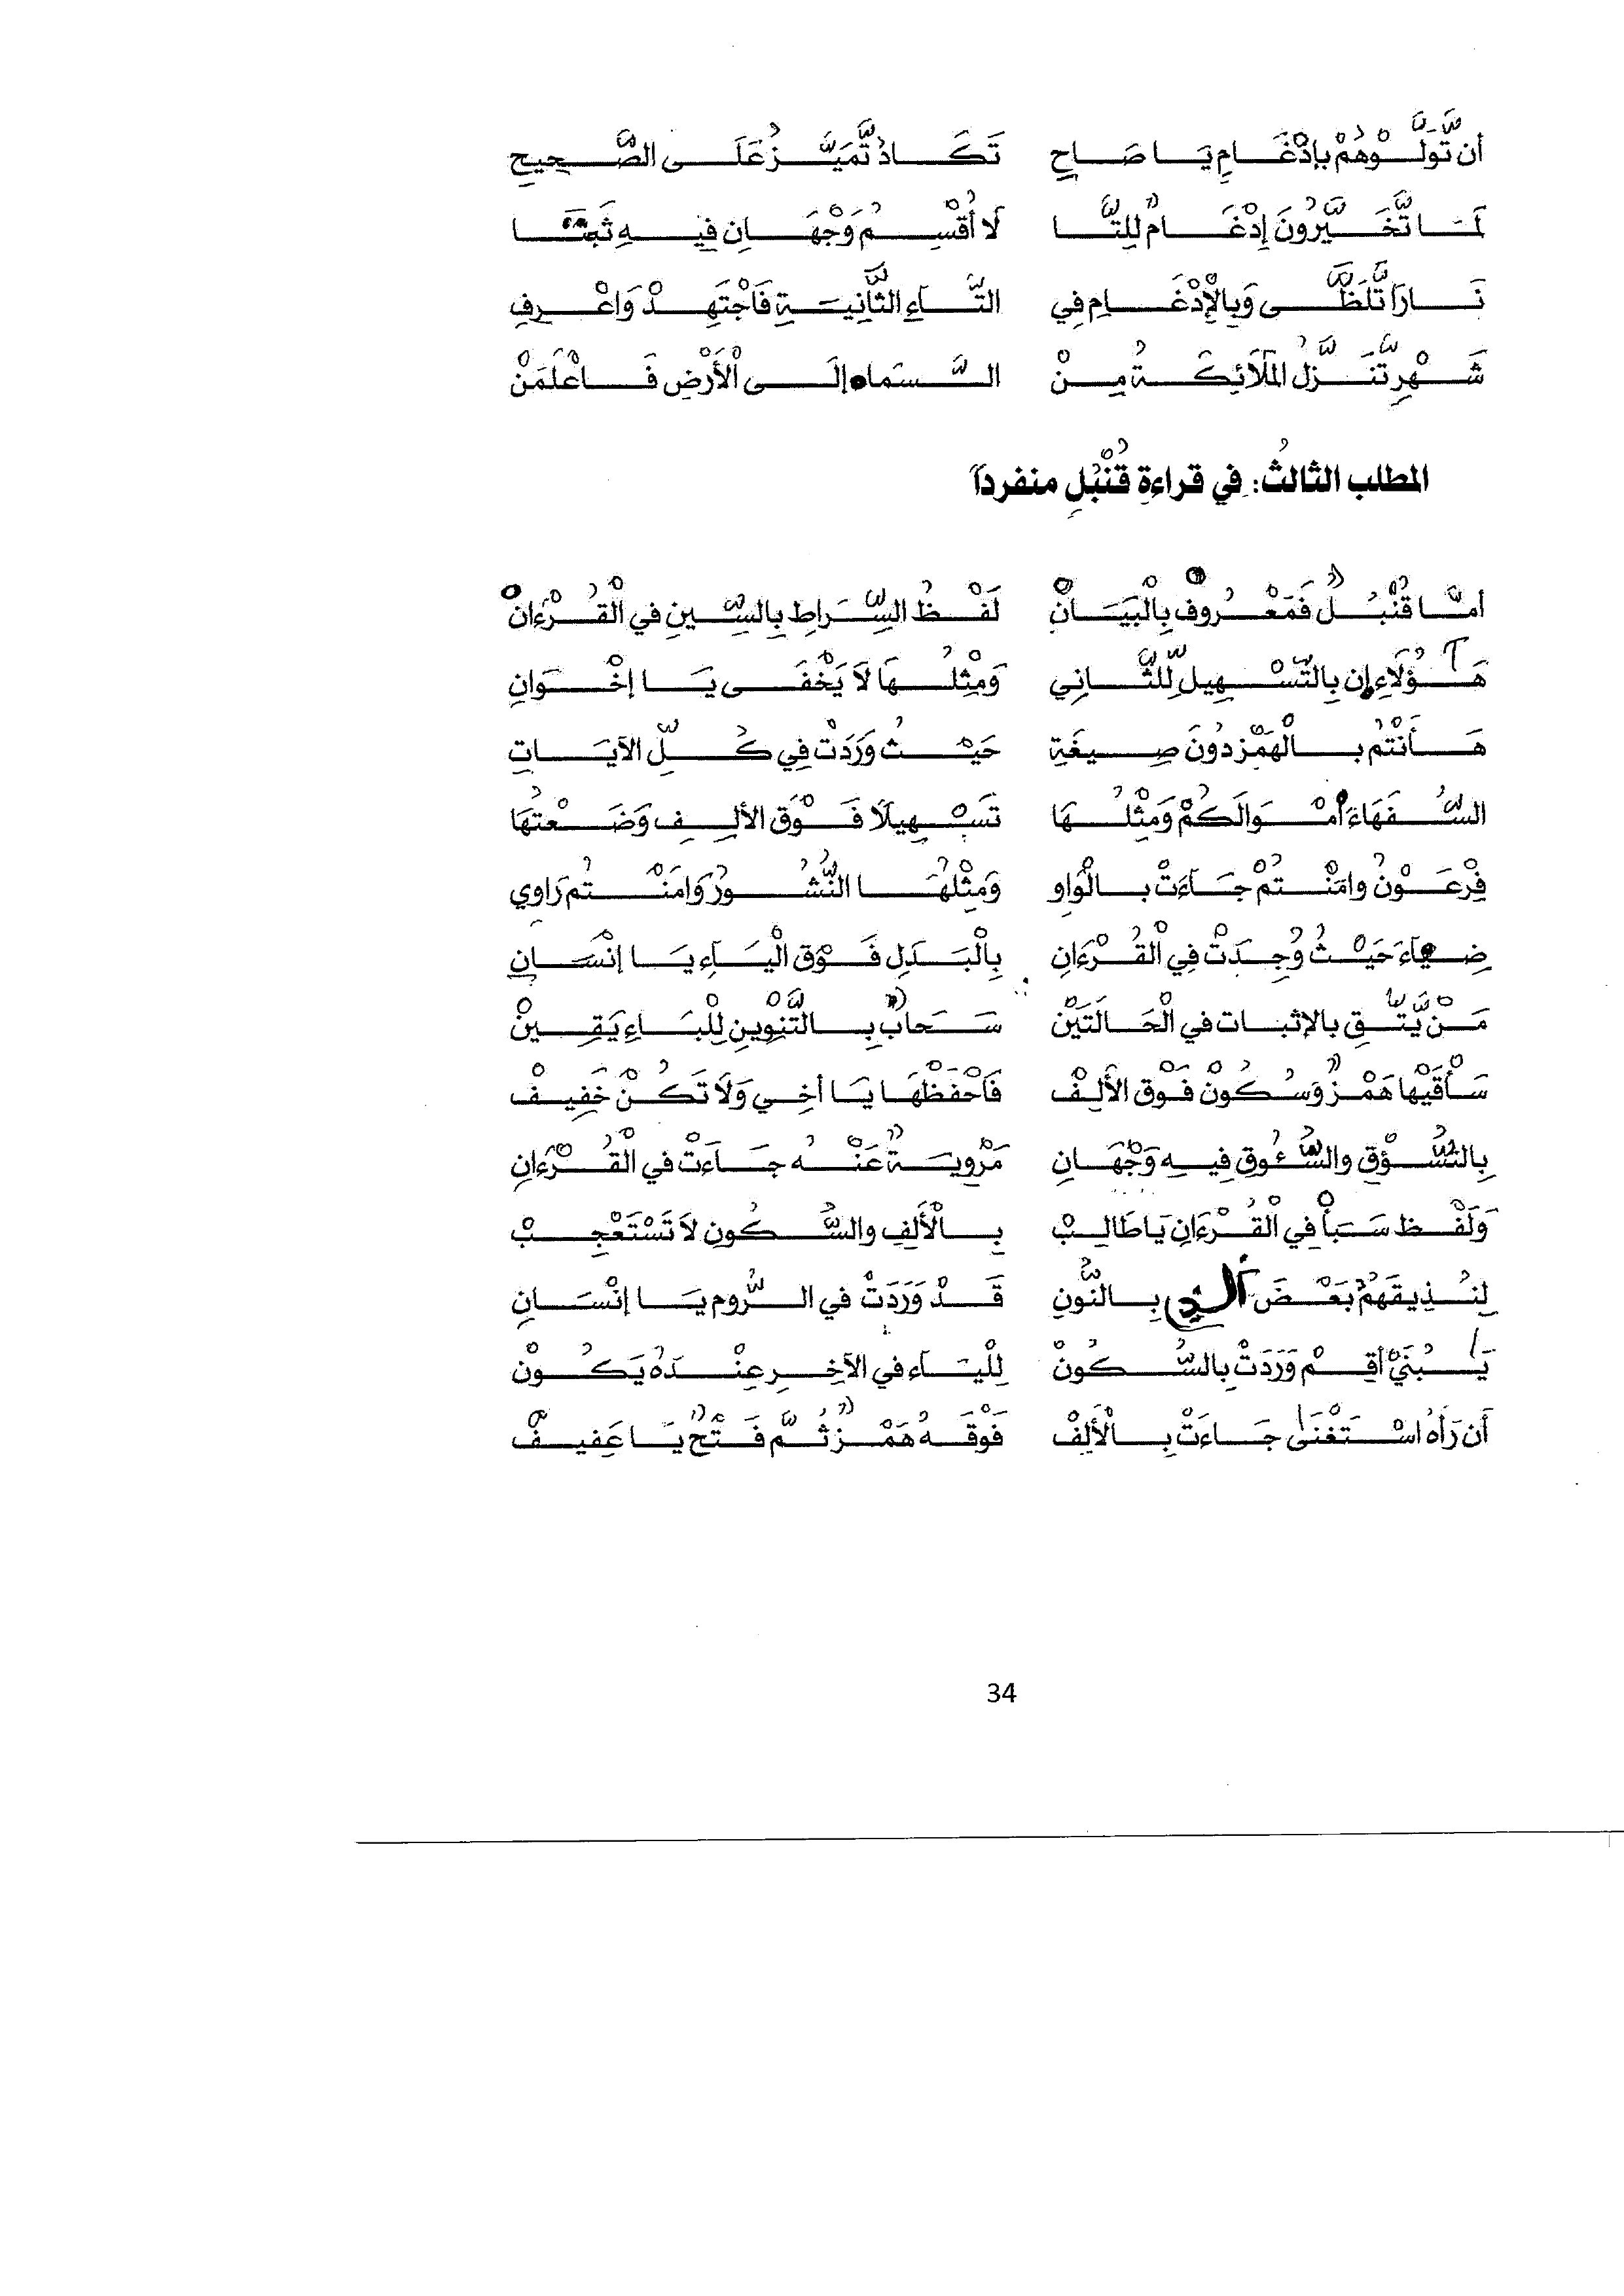 أَن تَّوَلَّوْهُمْ بِإِدْغَامِ يَا صَاحِ تَكَادُ تَّمَيَّزُ عَلَى الصَّحِيحِ
لَمَا تَّخَيَّرُونَ إِدْغَامٌ لِلتَّا لَا أُقْسِمُ وَجْهَانِ فِيهِ ثَبَتَا
نَارًا تَّلَظَّى وَبِالْإِدْغَامِ فِي التَّاءِ الثَّانِيَةِ فَاجْتَهِدْ وَاعْرِفِ
شَهْرٍ تَّنَزَّلُ الْمَلَائِكَةُ مِنْ السَّمَاءِ إِلَى الْأَرْضِ فَاعْلَمَنْ
المطلب الثالثُ: في قراءةِ قُنْبُلٍ منفرداً
أمَّا قُنْبُلٌ فَمَعْرُوفٌ بِالْبَيَانْ لَفْظُ السِّرَاطِ بِالسِّينِ فِي الْقُرْءَانْ
هَؤُلَاءِ إِن بِالتَّسْهِيلِ لِلثَّانِي وَمِثْلُهَا لاَ يَخْفَى يَا إِخْوَانِ
هَأَنْتُم بِالْهَمْزِ دُونَ صِيغَةِ حَيْثُ وَرَدَتْ فِي كُلِّ الآيَاتِ
السُّفَهَاءَ أَمْوَالَكُمْ وَمِثْلُهَا تَسْهِيلًا فَوْقَ الألِفِ وَضَعْتُهَا
فِرْعَوْنُ وامَنْتُمْ جَاءَتْ بِالْوَاوِ وَمِثْلُهَا النُّشُورُ وَامَنْتُم رَاوِي
ضِئَاءً حَيْثُ وُجِدَتْ فِي الْقُرْءَانِ بِالْبَدَلِ فَوْقَ الْيَاءِ يَا إِنْسَانِ
مَنْ يَّتَّقِ بالإثبات في الْحَالَتَيْنْ سَحَابٌ بِالتَّنْوِينِ لِلْبَاءِ يَقِينْ
سَأْقَيْهَا هَمْزٌ وَسُكُونْ فَوْقَ الأَلِفْ فَاحْفَظْهَا يَا أَخِي وَلَا تَكُنْ خَفِيفْ
بِالسُّؤْقِ والسُّئُوقِ فِيهِ وَجْهَانِ مَرْوِيَةٌ عَنْهُ جَاءَتْ فِي الْقُرْءَانِ
وَلَفْظ سَبَأْ فِي الْقُرْءَانِ يَا طَالِبْ بِالْأَلِفِ والسُّكُونِ لاَ تَسْتَعْجِبْ
لِنُذِيقَهُمْ بَعْضَ الذِي بِالنُّونِ قَدْ وَرَدَتْ فِي الرُّومِ يَا إِنْسَانِ
يَٰبُنَيَّ أَقِمْ وَرَدَتْ بِالسُّكُونْ لِلْيَاءِ فِي الآخِرِ عِنْدَهُ يَكُونْ
أَن رَأَهُ اسْتَغْنَى جَاءَتْ بِالْأَلِفْ فَوْقَهُ هَمْزٌ ثُمَّ فَتْحٌ يَا عَفِيفْ
34